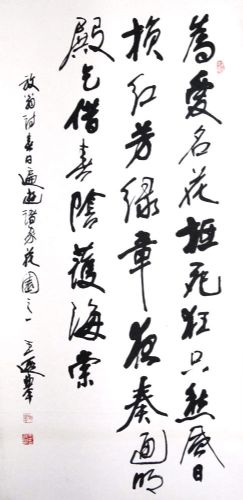 為愛名花抵死狂只愁風日
損紅芳綠章夜奏通明
殿乞借春陰護海棠
放翁詩春日遍遊諸家花園之一 王遐舉